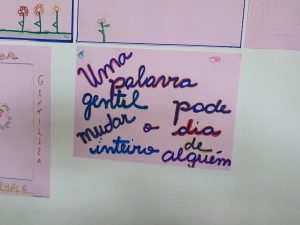 Uma
palavra
gentil pode
mudar o dia
inteiro de
alguém
GENTILEZA